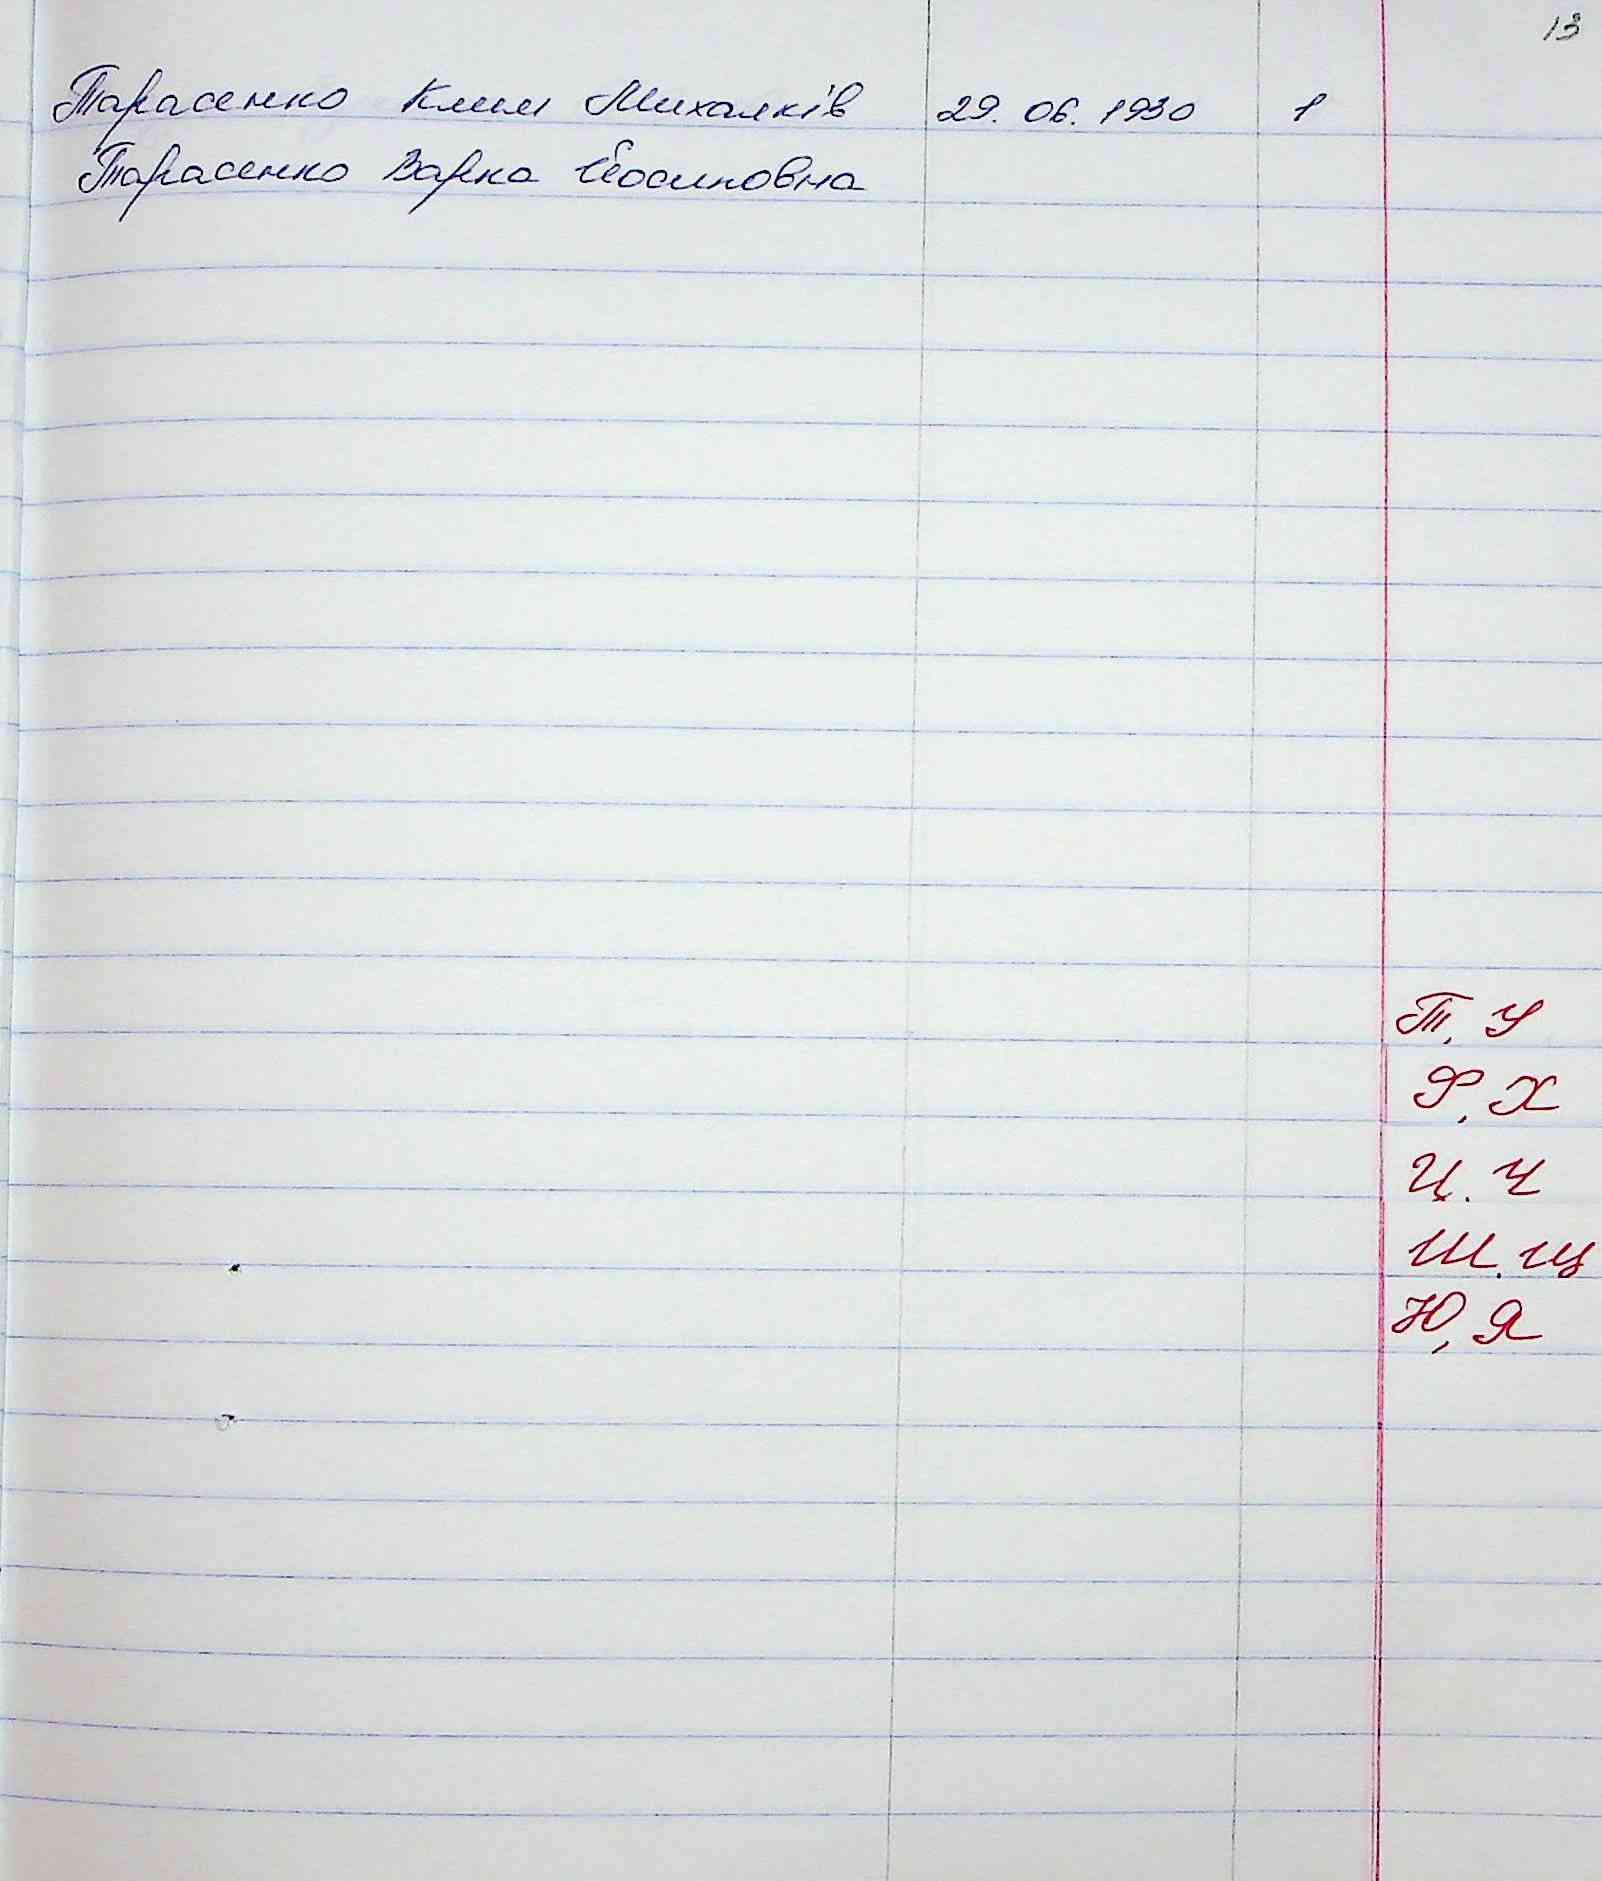 13
Тарасенко Клим Михалків 29. 06. 1930 1
Тарасенко Варка Йосиповна
Т, У
Ф, Х
Ц. Ч
Ш. Щ
Ю, Я